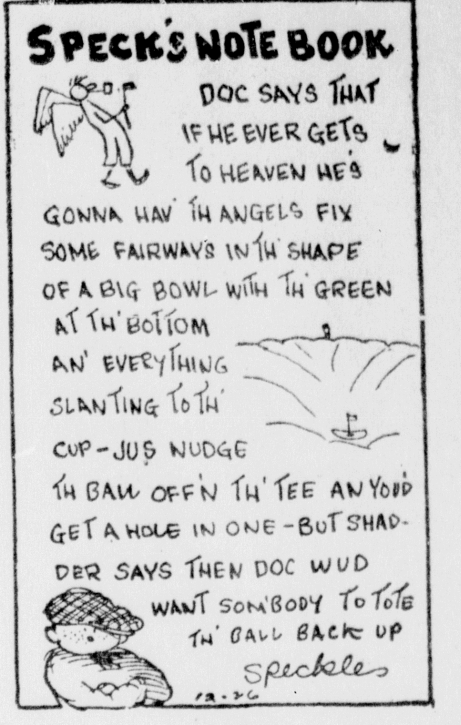 SPECK'S NOTE BOOK
DOC SAYS THAT
IF HE EVER GETS
TO HEAVEN HE'S
GONNA HAV' TH' ANGELS FIX
SOME FAIRWAYS IN TH' SHAPE
OF A BIG BOWL WITH TH' GREEN
AT TH' BOTTOM
AN' EVERYTHING
SLANTING TO TH'
CUP - JUS NUDGE
TH BALL OFF'N TH' TEE AN YOU'D
GET A HOLE IN ONE - BUT SHAD-
DER SAYS THEN DOC WUD
WANT SOM'BODY TO TOTE
TH' BALL BACK UP
Speckles
12-26